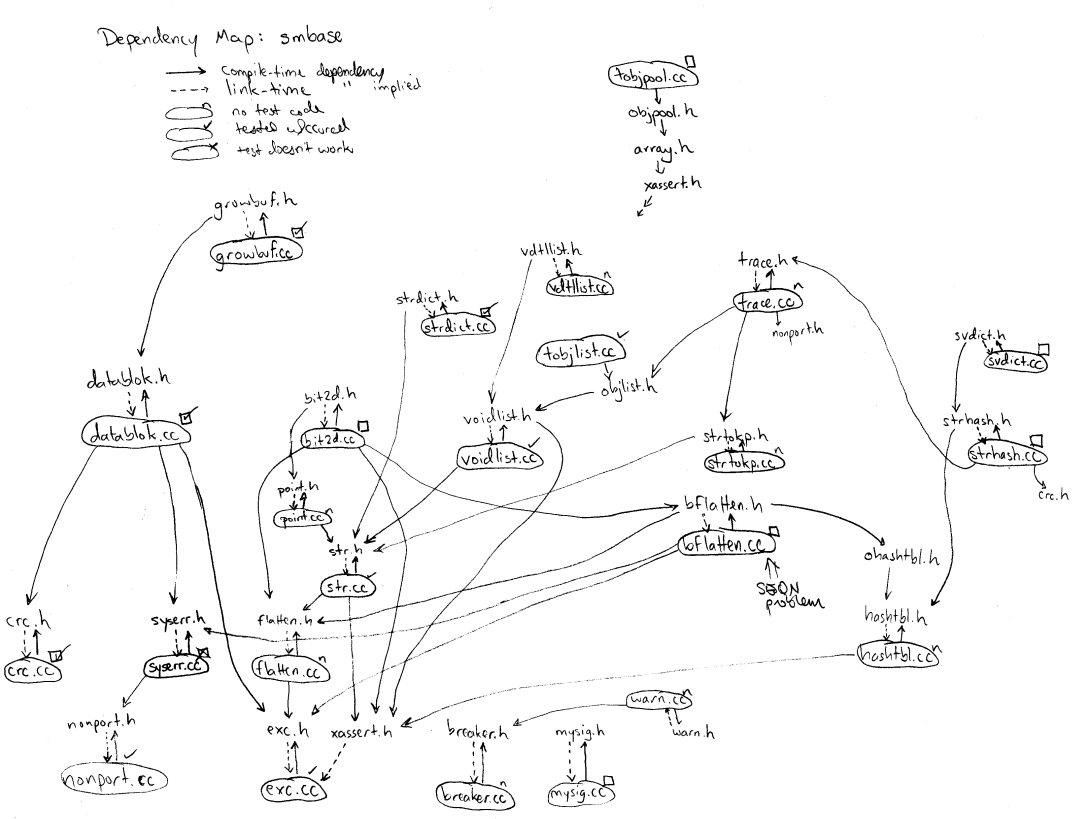 Dependency Map: smbase
compile-time dependency
link-time " implied
no test code
tested w/ccured
test doesn't work
tobjpool.cc
objpool.h
array.h
xassert.h
growbuf.h
growbuf.cc
vdtllist.h
vdtllist.cc
trace.h
trace.cc
nonport.h
strdict.h
strdict.cc
tobjlist.cc
objlist.h
svdict.h
svdict.cc
datablok.h
datablok.cc
bit2d.h
bit2d.cc
voidlist.h
voidlist.cc
strtokp.h
strtokp.cc
strhash.h
strhash.cc
crc.h
point.h
point.cc
bflatten.h
bflatten.cc
str.h
str.cc
ohashtbl.h
problem
crc.h
crc.cc
syserr.h
syserr.cc
flatten.h
flatten.cc
hashtbl.h
hashtbl.cc
nonport.h
nonport.cc
exc.h
exc.cc
xassert.h
breaker.h
breaker.cc
mysig.h
mysig.cc
warn.cc
warn.h